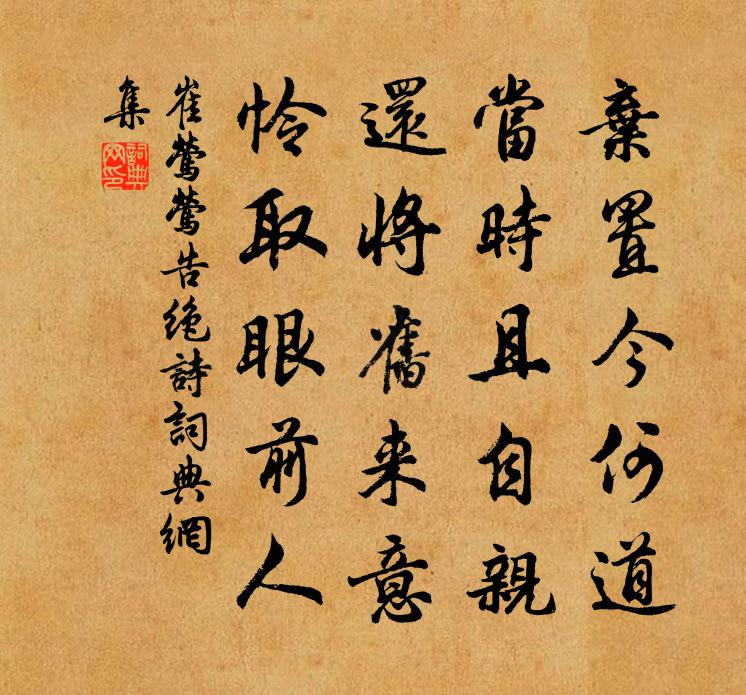 棄置今何道
當時且自親
還將舊来意
怜取眼前人
崔鶯鶯告绝詩詞典網
集
詞典網印